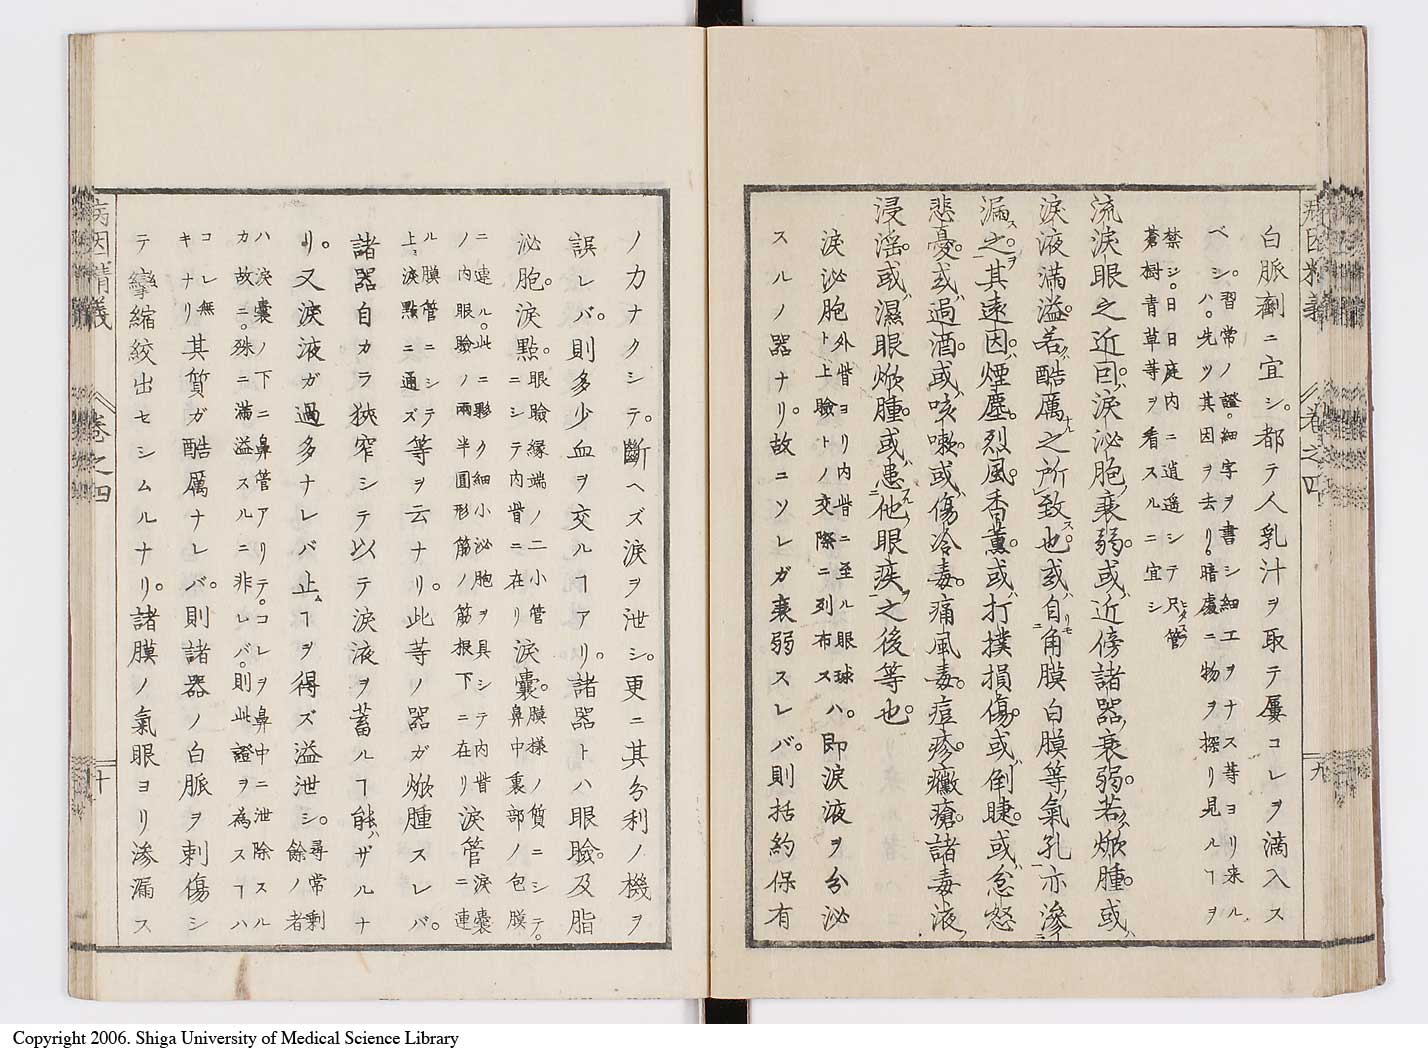 白脈劑ニ宜シ。都テ人乳汁ヲ取テ屢コレヲ滴入ス
ベシ。習常ノ證。細字ヲ書シ細工ヲナス等ヨリ来ル
ハ。先ツ其因ヲ去リ。暗處ニ物ヲ探リ見ルヿヲ
禁シ。日日庭内ニ逍遥シテ尺管
蒼樹青草等ヲ看スルニ宜シ
流涙眼之近因。涙泌胞衰弱。或近傍諸器衰弱。若焮腫。或
涙液満溢。若酷厲之所致也。或自角膜白膜等氣孔亦滲
漏之。其遠因。煙塵。烈風。香薫。或打撲損傷。或倒睫。或忿怒
悲憂。或過酒。或咳嗽。或傷冷毒。痛風毒。痘疹。黴瘡諸毒液
浸淫。或濕眼焮腫。或患他眼疾之後等也。
涙泌胞外眥ヨリ内眥ニ至ル眼球
ト上瞼トノ交際ニ列布スハ。即涙液ヲ分泌
スルノ器ナリ。故ニソレガ衰弱スレバ。則括約保有
ノ力ナクシテ。斷ヘズ涙ヲ泄シ。更ニ其分利ノ機ヲ
誤レバ。則多少血ヲ交ルヿアリ。諸器トハ眼瞼。及脂
泌胞。涙點。眼瞼縁端ノ二小管
ニシテ内眥ニ在リ涙嚢。膜様ノ質ニシテ。
鼻中裏部ノ包膜
ニ連ル。此ニ夥ク細小泌胞ヲ具シテ内眥
ノ内眼瞼ノ兩半圓形筋ノ筋根下ニ在リ涙管涙嚢
ニ連
ル膜管ニシテ
上涙點ニ通ズ等ヲ云ナリ。此等ノ器ガ焮腫スレバ。
諸器自カラ狹窄シテ以テ涙液ヲ蓄ルヿ能ハザルナ
リ。又涙液ガ過多ナレバ止ムヿヲ得ズ溢泄シ。尋常剩
餘ノ者
ハ涙嚢ノ下ニ鼻管アリテ。コレヲ鼻中ニ泄除スル
カ故ニ。殊ニ満溢スルニ非レバ。則此證ヲ為スヿハ
コレ無
キナリ其質ガ酷厲ナレバ。則諸器ノ白脈ヲ刺傷シ
テ攣縮絞出セシムルナリ。諸膜ノ氣眼ヨリ滲漏ス
病因精義
卷之四
九
病因精義
卷之四
十
Copyright 2006. Shiga University of Medical Science Library